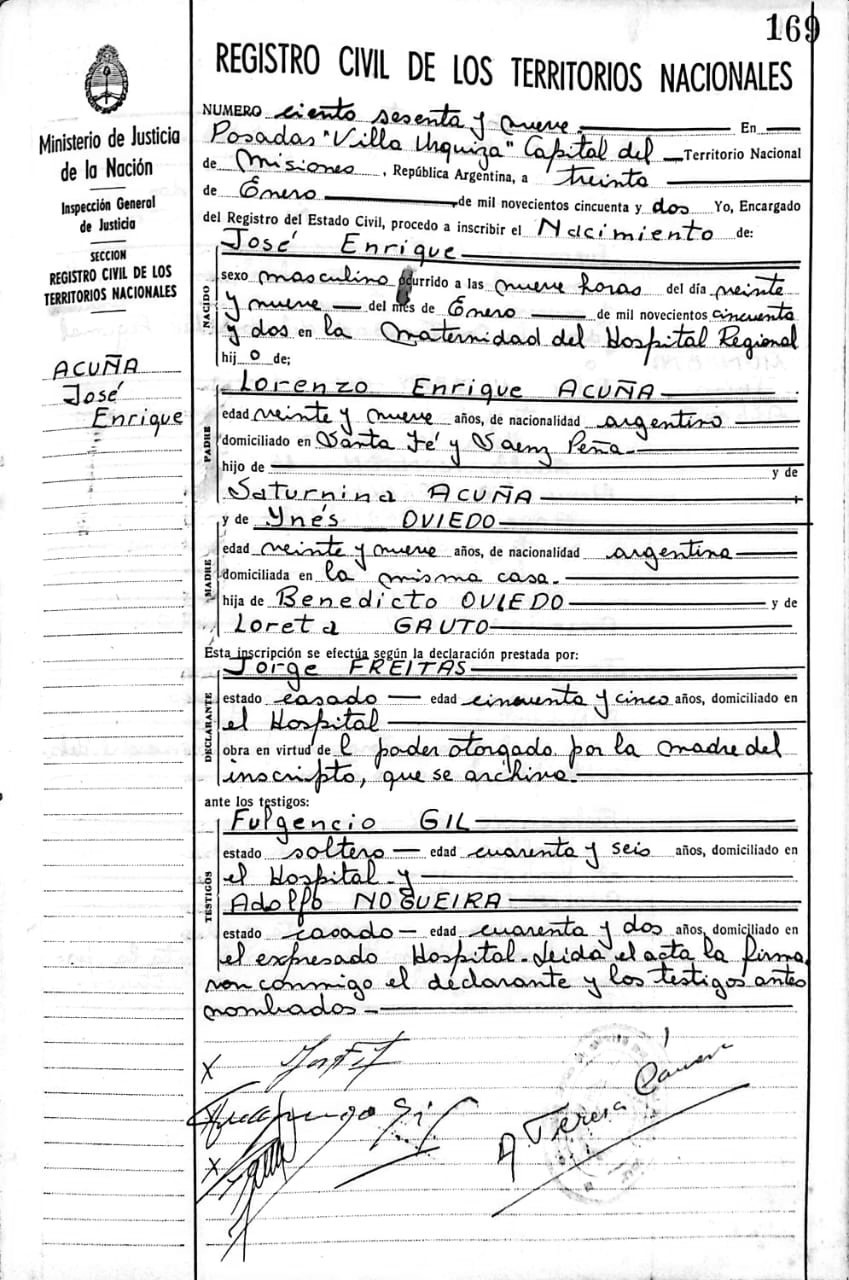 169
REGISTRO CIVIL DE LOS TERRITORIOS NACIONALES
Ministerio de Justicia
de la Nación
Inspección General
de Justicia
SECCION
REGISTRO CIVIL DE LOS
TERRITORIOS NACIONALES
ACUÑA
José
Enrique
NUMERO ciento sesenta y nueve. En
Posadas "Villa Urquiza" Capital del Territorio Nacional
de Misiones, República Argentina, a treinta
de Enero de mil novecientos cincuenta y dos Yo, Encargado
del Registro del Estado Civil, procedo a inscribir el Nacimiento de:
José Enrique
NACIDO
sexo masculino ocurrido a las nueve horas del día veinte
y nueve del mes de Enero de mil novecientos cincuenta
y dos en la Maternidad del Hospital Regional
hijo de;
Lorenzo Enrique ACUÑA
PADRE
edad veinte y nueve años, de nacionalidad argentino
domiciliado en Santa Fé y Saenz Peña.
hijo de y de
Saturnina ACUÑA
y de Ynés OVIEDO
MADRE
edad veinte y nueve años, de nacionalidad argentina
domiciliada en la misma casa.
hija de Benedicto OVIEDO y de
Loreta GAUTO
Esta inscripción se efectúa según la declaración prestada por:
Jorge FREITAS
DECLARANTE
estado casado edad cincuenta y cinco años, domiciliado en
el Hospital
obra en virtud del poder otorgado por la madre del
inscripto, que se archiva.
ante los testigos:
Fulgencio GIL
TESTIGOS
estado soltero edad cuarenta y seis años, domiciliado en
el Hospital y
Adolfo NOGUEIRA
estado casado edad cuarenta y dos años, domiciliado en
el expresado Hospital. Leida el acta la firma
ron conmigo el declarante y los testigos antes
nombrados.
X
X
A Teresa